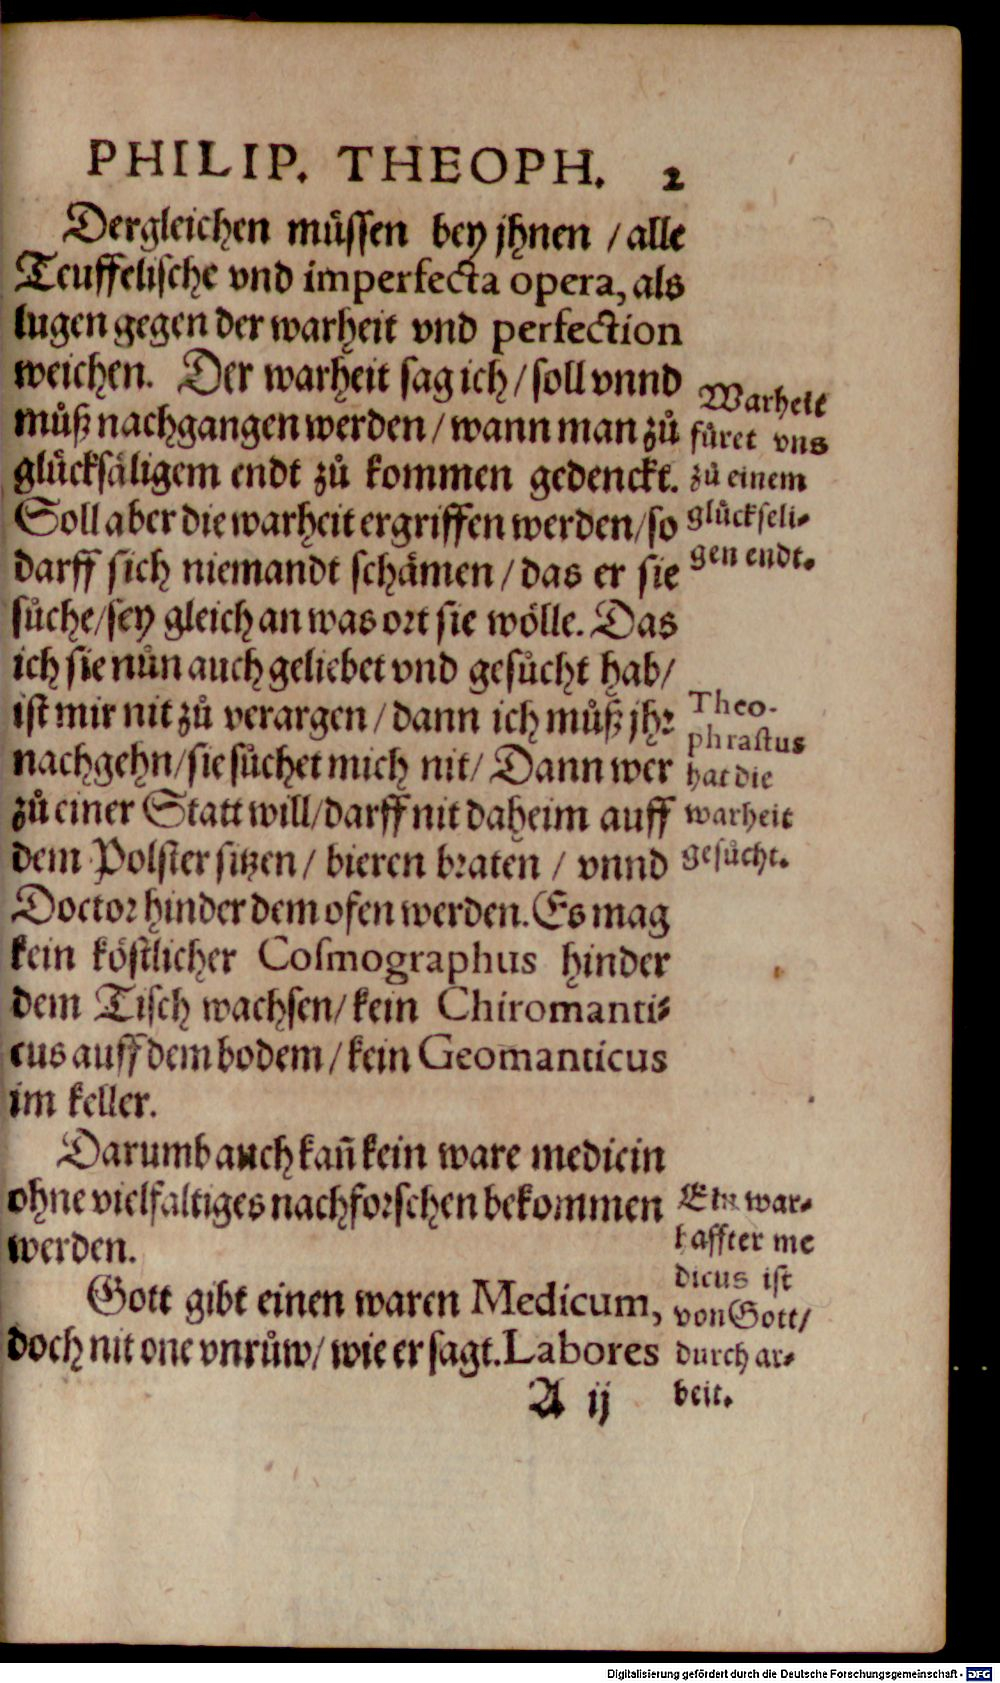 PHILIP. THEOPH. 2
Dergleichen müssen bey jhnen / alle
Teuffelische vnd imperfecta opera, als
lugen gegen der warheit vnd perfection
weichen. Der warheit sag ich / soll vnnd
můß nachgangen werden / wann man zů
glücksäligem endt zů kommen gedenckt.
Soll aber die warheit ergriffen werden / so
darff sich niemandt schämen / das er sie
sůche / sey gleich an was ort sie wölle. Das
ich sie nůn auch geliebet vnd gesůcht hab /
ist mir nit zů verargen / dann ich můß jhr
nachgehn / sie sůchet mich nit / Dann wer
zů einer Statt will / darff nit daheim auff
dem Polster sitzen / bieren braten / vnnd
Doctor hinder dem ofen werden. Es mag
kein köstlicher Cosmographus hinder
dem Tisch wachsen / kein Chiromanti-
cus auff dem bodem / kein Geomanticus
im keller.
Darumb auch kañ kein ware medicin
ohne vielfaltiges nachforschen bekommen
werden.
Gott gibt einen waren Medicum,
doch nit one vnrůw / wie er sagt. Labores
A ij
Warheit
füret vns
zů einem
glückseli-
gen endt.
Theo-
phrastus
hat die
warheit
gesůcht.
Ein war-
haffter me
dicus ist
von Gott /
durch ar-
beit.
Digitalisierung gefördert durch die Deutsche Forschungsgemeinschaft - DFG